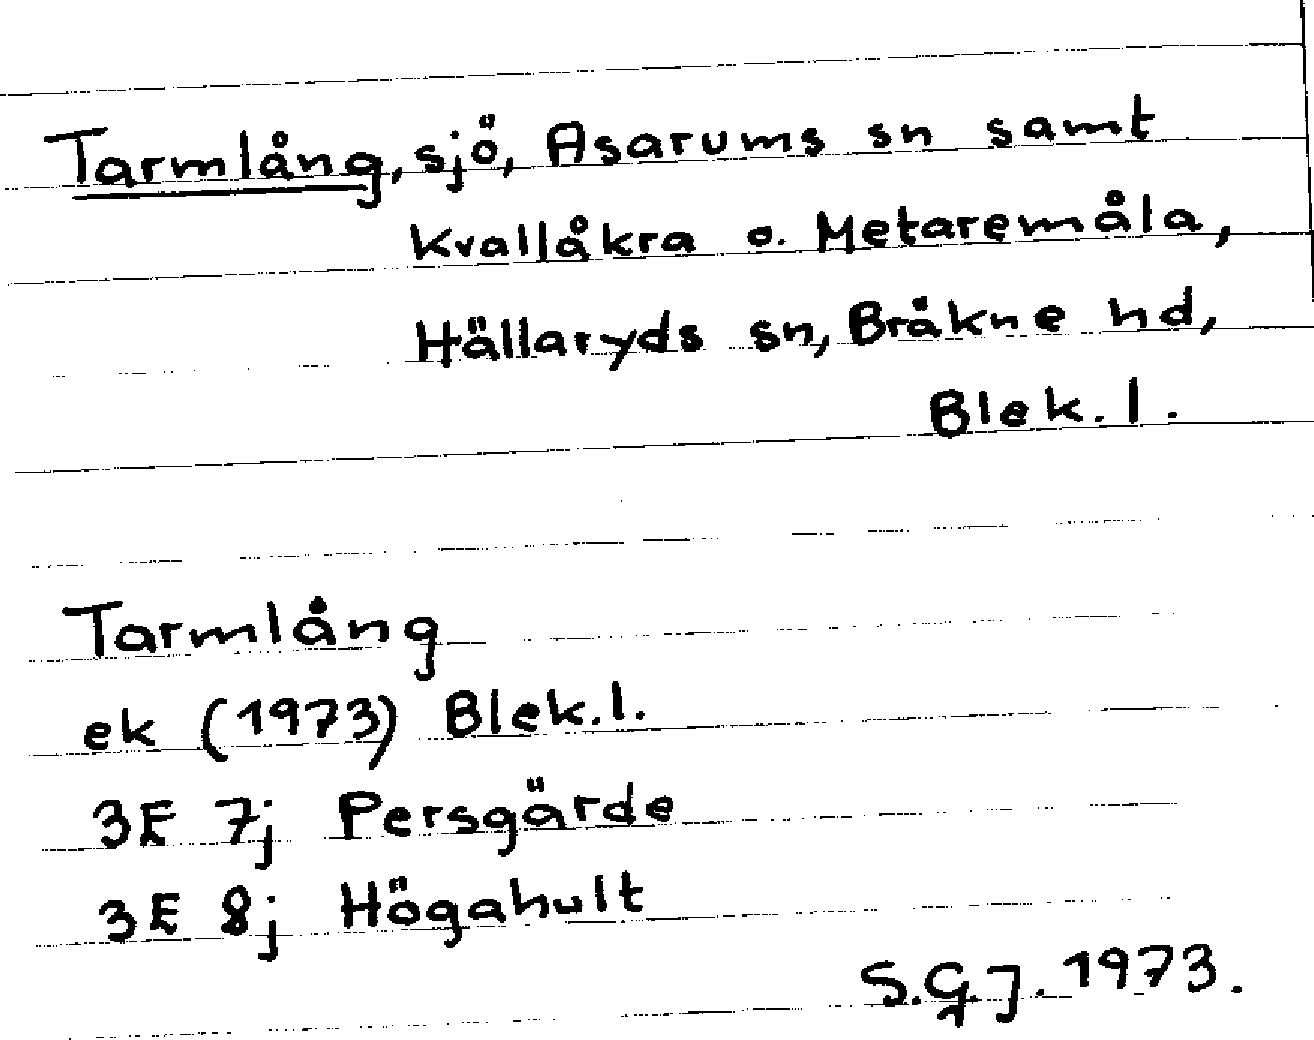 Tarmlång, sjö, Asarums sn samt
Kvallåkra o. Metaremåla,
Hällaryds sn, Bräkne hd,
Blek. l.
Tarmlång
ek (1973) Blek. l.
3E 7j Persgärde
3E 8j Högahult
S.G.J. 1973.